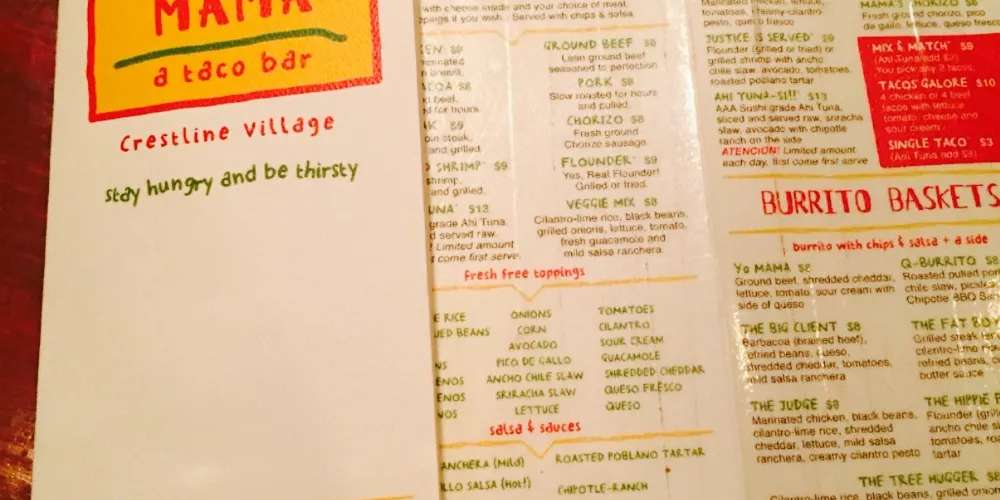 MAMA
a taco bar
Crestline Village
stay hungry and be thirsty
with cheese inside and your choice of meat.
if you wish. Served with chips & salsa
$9
beef,
for hours
$9
steak,
and grilled
SHRIMP $9
shrimp,
and grilled.
TUNA $13
grade Ahi Tuna,
served raw.
Limited amount
come first serve.
GROUND BEEF $8
Lean ground beef
seasoned to perfection
PORK $8
Slow roasted for hours
and pulled.
CHORIZO $8
Fresh ground
Chorizo sausage.
FLOUNDER $9
Yes, Real Flounder!
Grilled or fried.
VEGGIE MIX $8
Cilantro-lime rice, black beans,
grilled onions, lettuce, tomato,
fresh guacamole and
mild salsa ranchera.
fresh free toppings
RICE
BEANS
ONIONS
CORN
AVOCADO
PICO DE GALLO
ANCHO CHILE SLAW
SRIRACHA SLAW
LETTUCE
TOMATOES
CILANTRO
SOUR CREAM
GUACAMOLE
SHREDDED CHEDDAR
QUESO FRESCO
QUESO
salsa & sauces
ANCHERA (Mild)
LLO SALSA (Hot!)
ROASTED POBLANO TARTAR
CHIPOTLE-RANCH
Marinated chicken, lettuce,
tomatoes, creamy-cilantro
pesto, queso fresco
JUSTICE IS SERVED $9
Flounder (grilled or fried) or
grilled shrimp with ancho
chile slaw, avocado, tomatoes,
roasted poblano tartar
AHI TUNA-SI!! $13
AAA Sushi grade Ahi Tuna,
sliced and served raw, sriracha
slaw, avocado with chipotle
ranch on the side
ATENCION! Limited amount
each day, first come first serve
MAMA'S CHORIZO $8
Fresh ground chorizo, pico
de gallo, lettuce, queso fresco
MIX & MATCH $9
(Ahi Tuna add $2)
You pick any 2 tacos.
TACOS GALORE $10
4 chicken or 4 beef
tacos with lettuce
tomato, cheese and
sour cream.
SINGLE TACO $3
(Ahi Tuna add $3)
BURRITO BASKETS
burrito with chips & salsa + a side
YO MAMA $8
Ground beef, shredded cheddar,
lettuce, tomato, sour cream with
side of queso
THE BIG CLIENT $8
Barbacoa (braised beef),
refried beans, queso,
shredded cheddar, tomatoes,
mild salsa ranchera
THE JUDGE $8
Marinated chicken, black beans,
cilantro-lime rice, shredded
cheddar, lettuce, mild salsa
ranchera, creamy cilantro pesto
Q-BURRITO $8
Roasted pulled
chile slaw,
Chipotle BBQ
THE FAT BOY
Grilled steak
cilantro-lime
refried beans,
butter sauce
THE HIPPIE
Flounder
ancho chile
tomatoes,
tartar
THE TREE HUGGER $8
Cilantro-lime rice, black beans, grilled onions